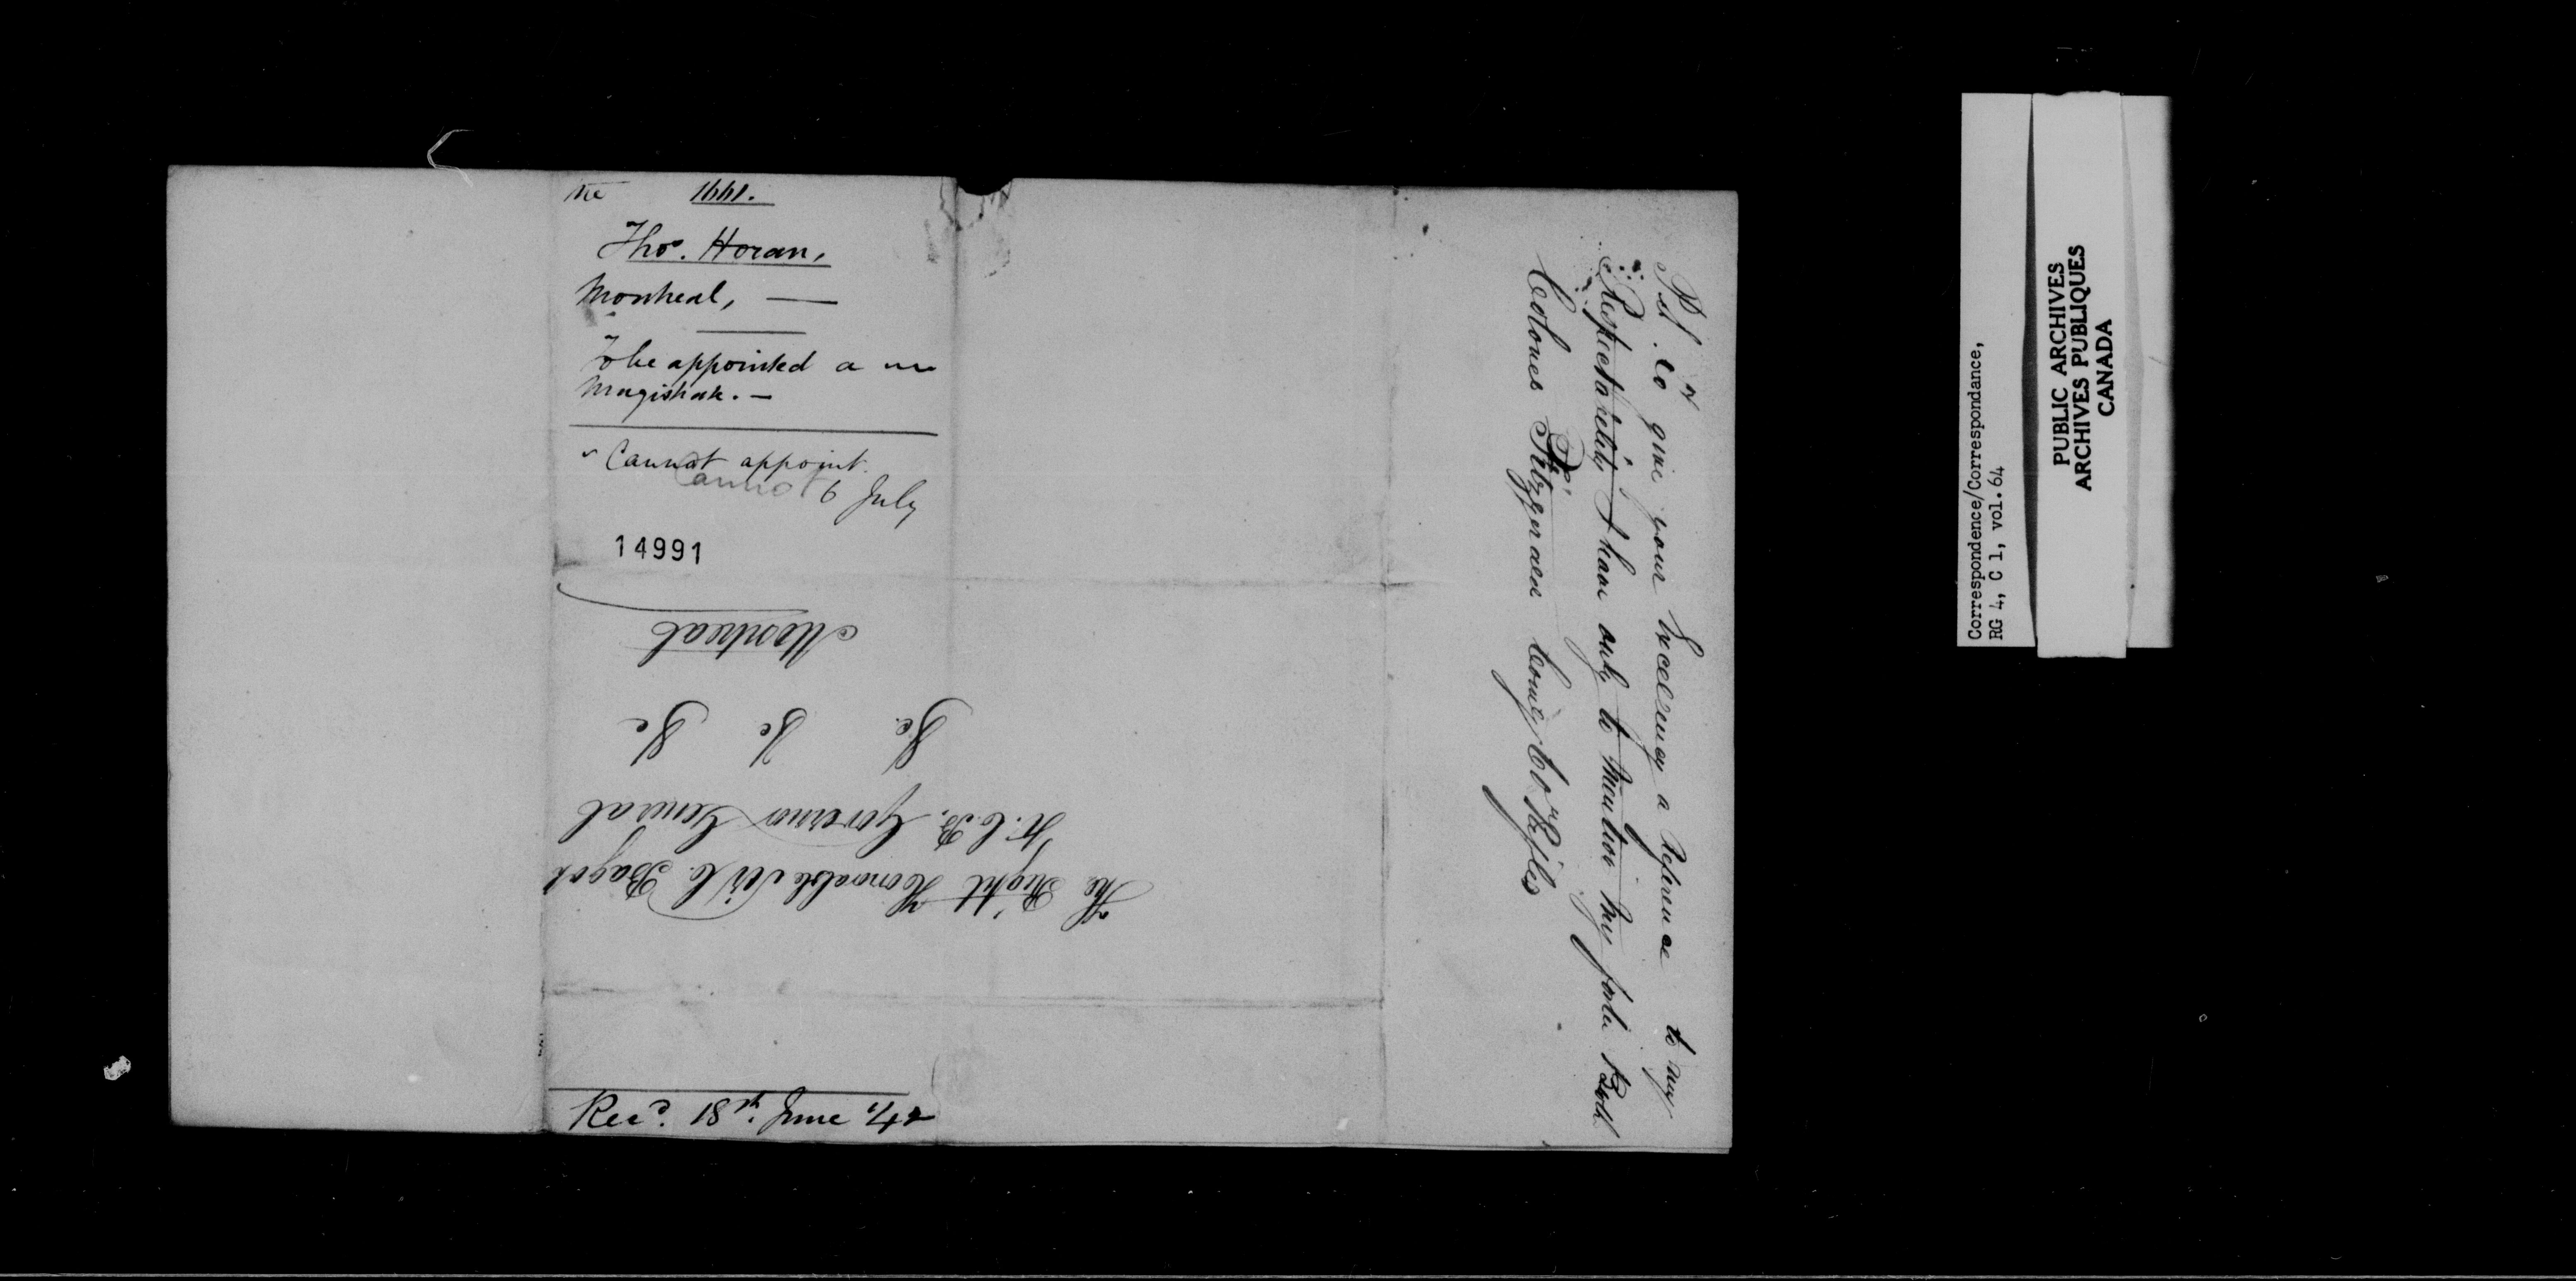 1661.
Thos. Horan,
Montreal, —
To be appointed a
Magistrate. —
Cannot appoint.
Cannot 6 July
14991
The Right Honorable Sir C. Bagot
K.C.B. Governor General
&c. &c. &c
Montreal
Recd. 18th June '/42
P.S. to give your Excellency a reference to my
Respectability I have only to mention my
Colonel Fitzgerald Rifles
Correspondence/Correspondance,
RG 4, C 1, vol. 64
PUBLIC ARCHIVES
ARCHIVES PUBLIQUES
CANADA